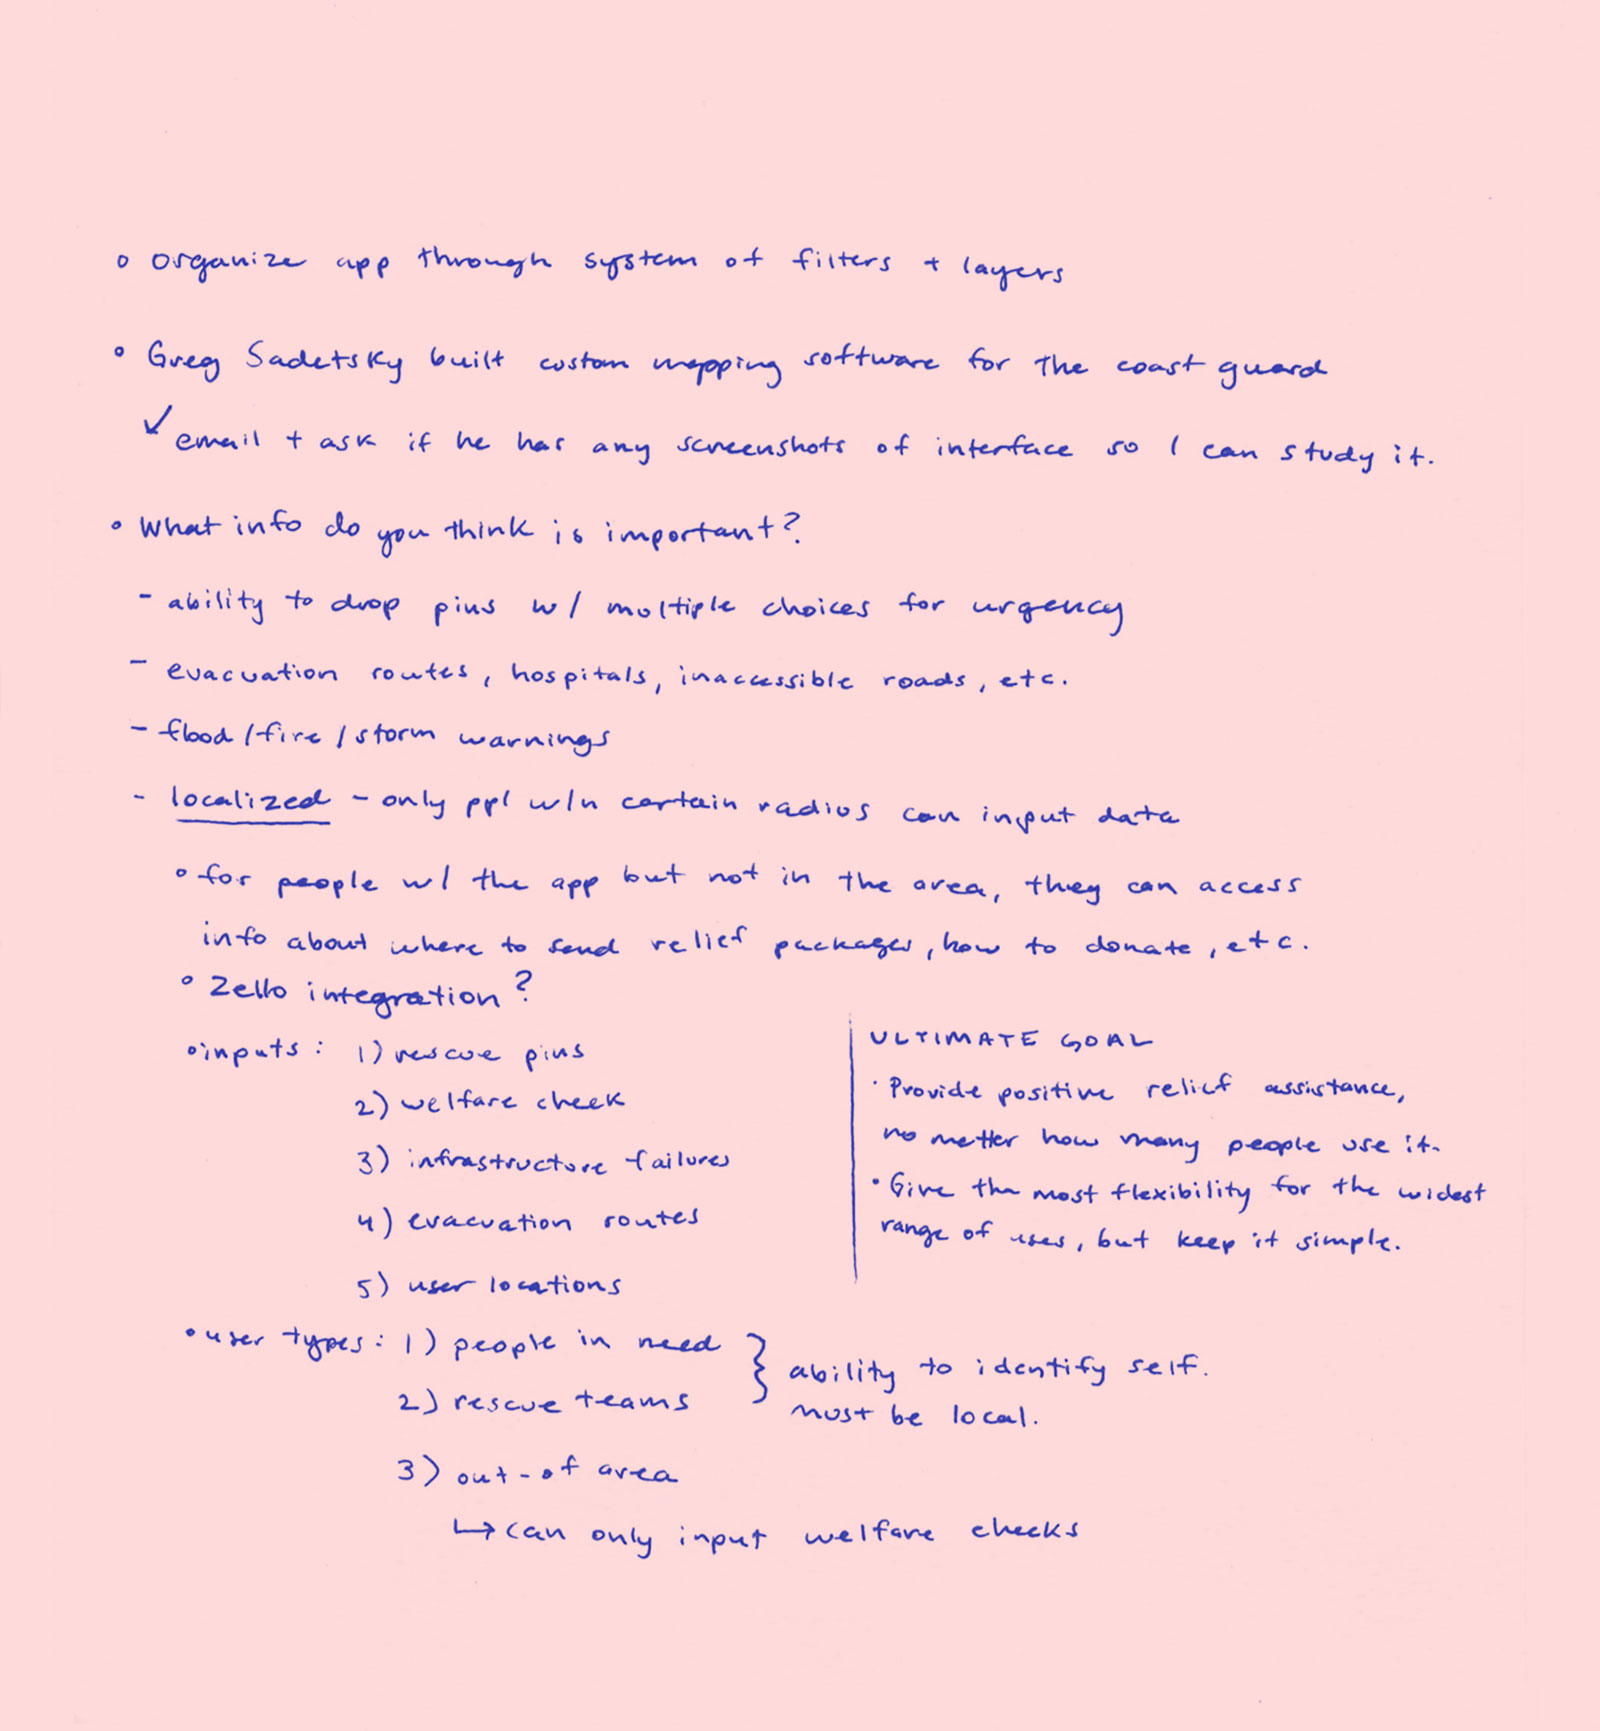 ° organize app through system of filters + layers
° Greg Sadetsky built custom mapping software for the coast guard
↙ email + ask if he has any screenshots of interface so I can study it.
° What info do you think is important?
- ability to drop pins w/ multiple choices for urgency
- evacuation routes, hospitals, inaccessible roads, etc.
- flood/fire/storm warnings
- localized - only ppl w/n certain radius can input data
° for people w/ the app but not in the area, they can access
info about where to send relief packages, how to donate, etc.
° Zello integration?
° inputs: 1) rescue pins
2) welfare check
3) infrastructure failures
4) evacuation routes
5) user locations
ULTIMATE GOAL
· Provide positive relief assistance,
no matter how many people use it.
· Give the most flexibility for the widest
range of uses, but keep it simple.
° user types: 1) people in need
2) rescue teams
} ability to identify self.
must be local.
3) out-of area
↳ can only input welfare checks